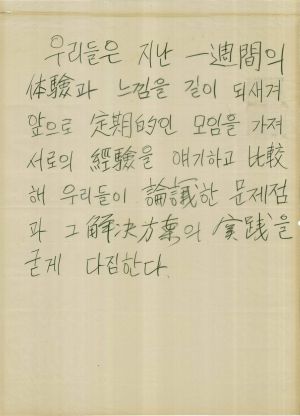 우리들은 지난 一週間의
体驗과 느낌을 깊이 되새겨
앞으로 定期的인 모임을 가져
서로의 經驗을 얘기하고 比較
해 우리들이 論議한 문제점
과 그 解決方案의 實践을
굳게 다짐한다.